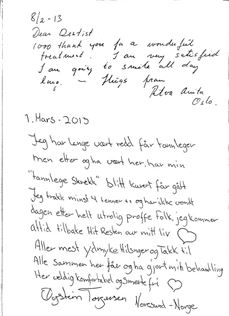 8/2-13
Dear Dentist
1000 thank you for a wonderful
treatment. I am very satisfied
I am going to smile all day
long. – Hugs from
Anita
Oslo.
1. Mars - 2013
Jeg har lenge vært redd får tannleger
men etter og ha vært her, har min
"tannlege skrekk" blitt kurert får gått
Jeg trakk minst 4 tenner og har ikke vondt
dagen etter helt utrolig proffe folk, jeg kommer
alltid tilbake hit Resten av mitt liv
Aller mest ydmyke Hilsnger og Takk til
Alle sammen her får og ha gjort min behandling
Her veldig komfortabel og smerte fri
Øystein Torgersen
Norge